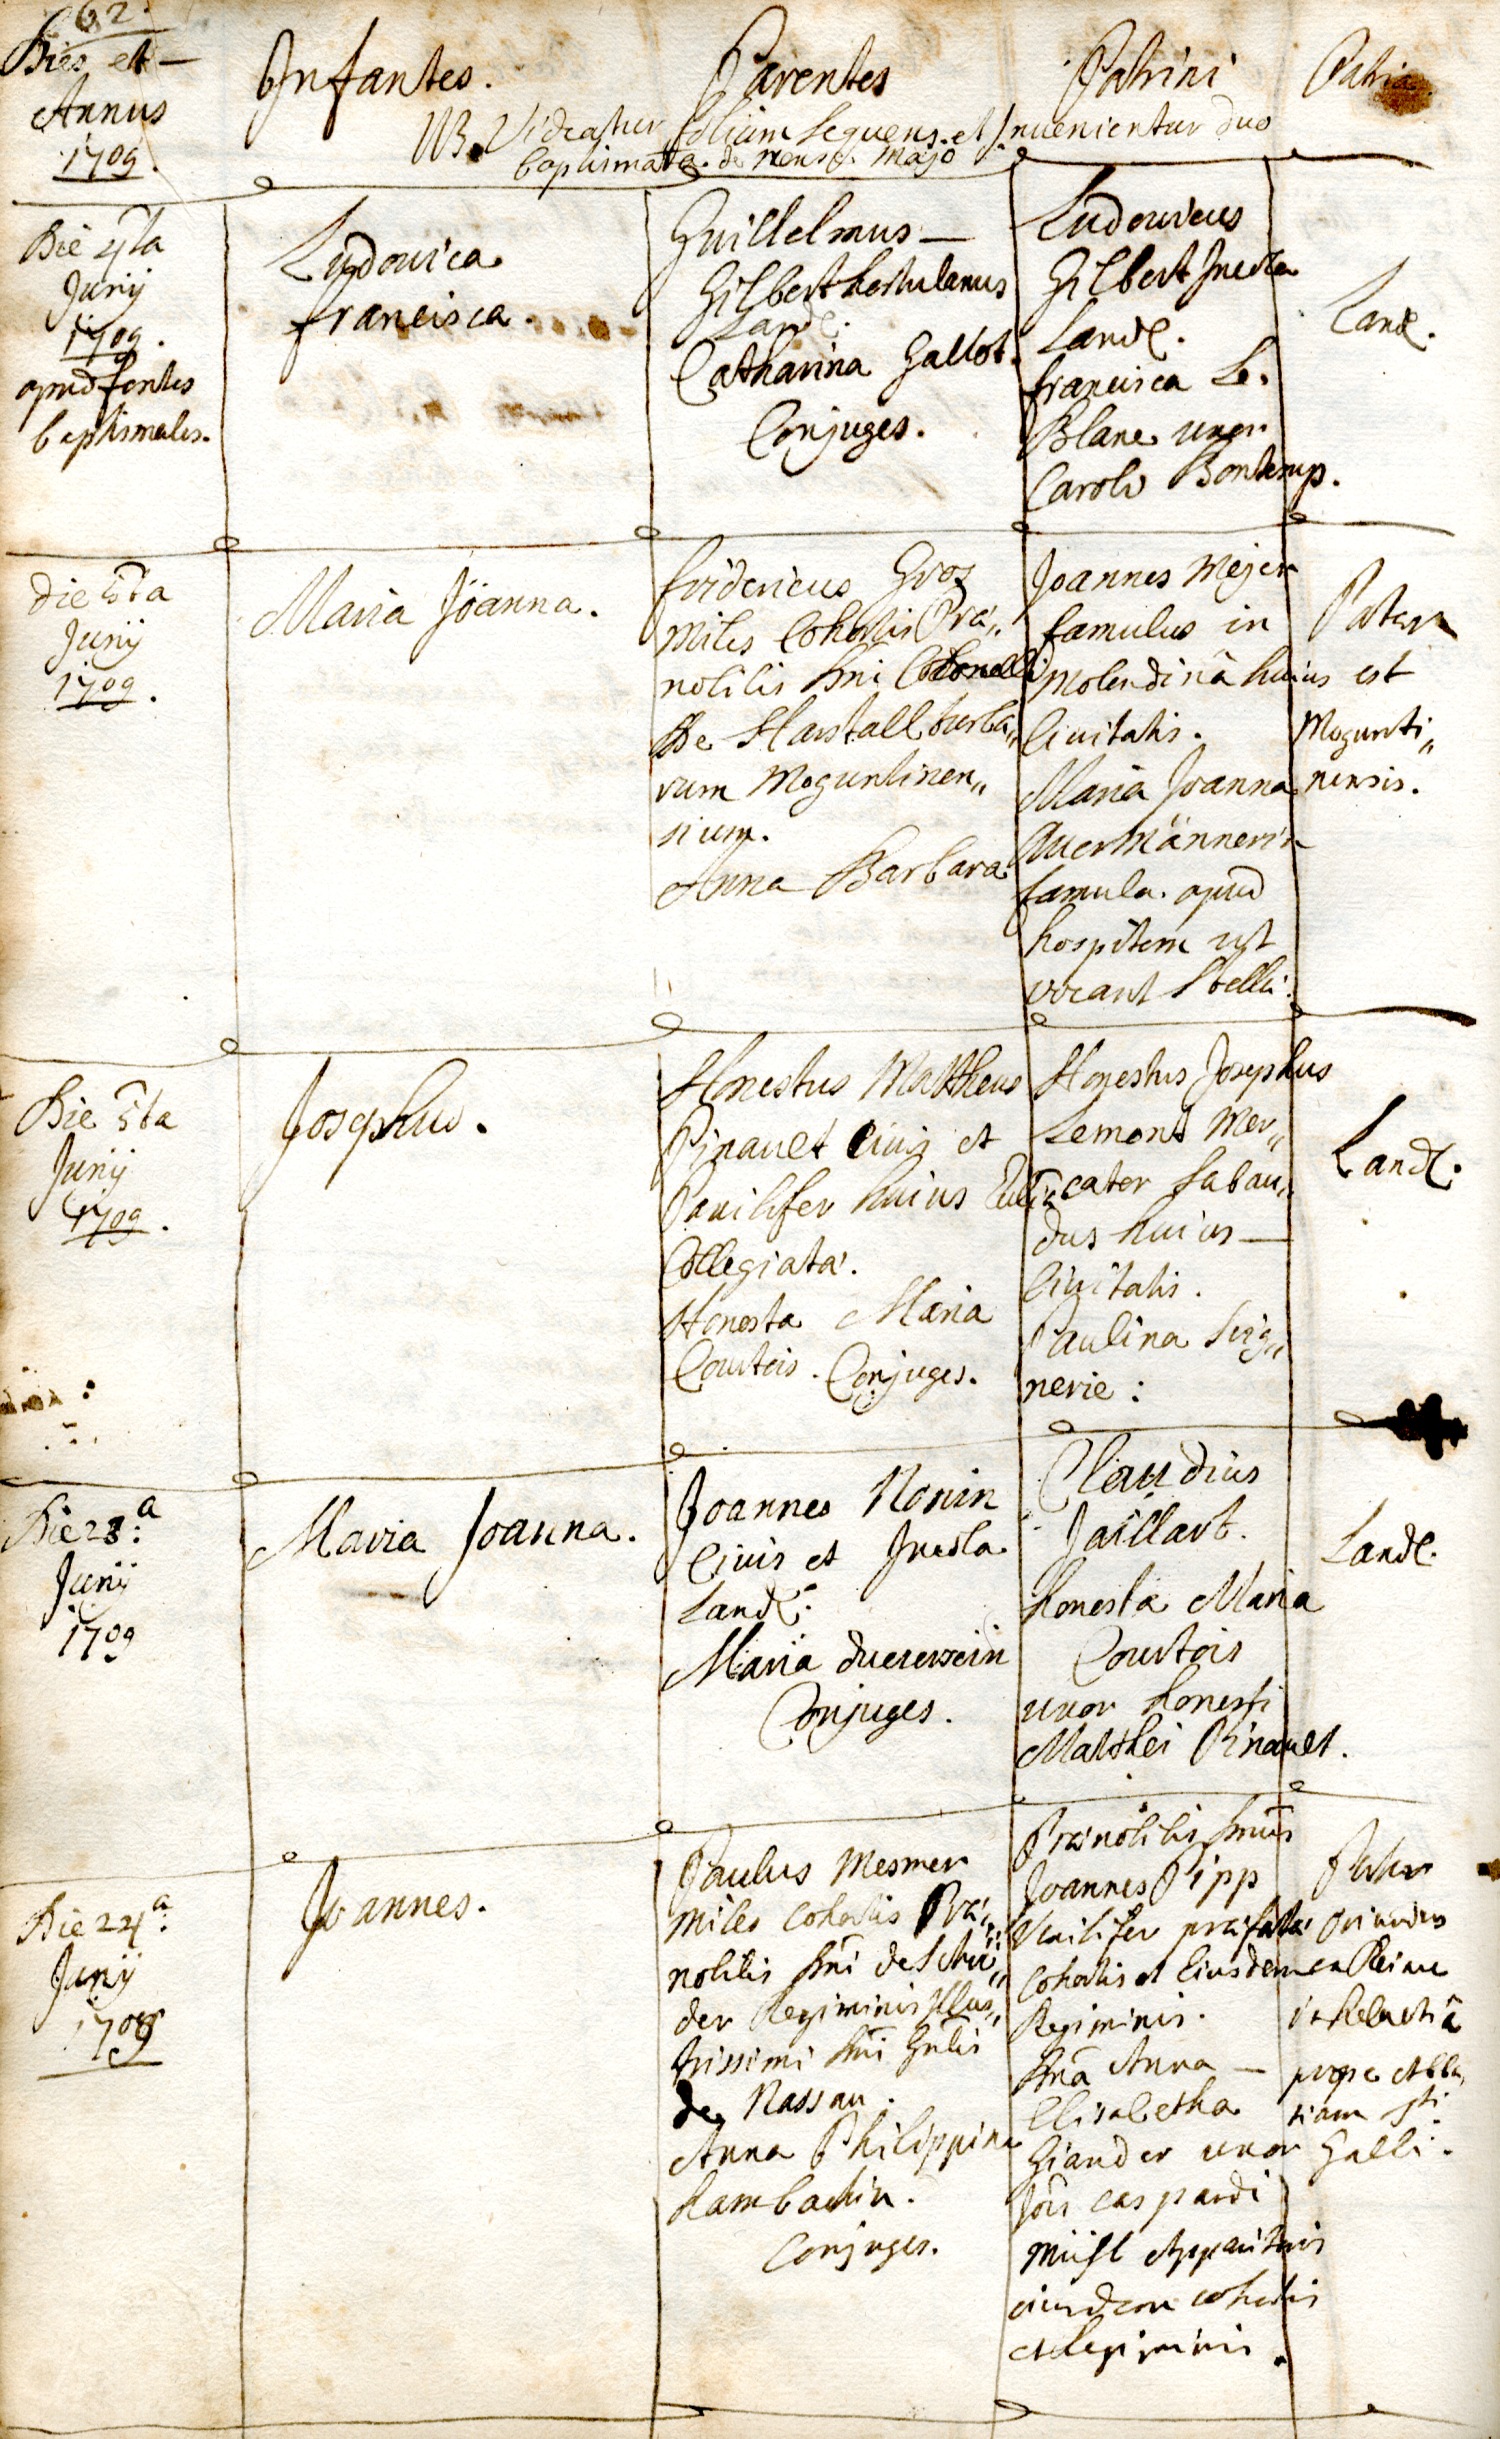 62.
Dies et
Annus
1709.
Infantes.
Parentes
Patrini
Patria
NB. Videatur folium sequens et invenientur duo
baptismata de mense Majo
Die 4ta
Junij
1709.
apud fontes
baptismales.
Ludovica
francisca.
Guillelmus
Gilbert hortulanus
Land.
Catharina Gallot.
Conjuges.
Ludovicus
Gilbert Incola
Land.
francisca Le.
Blanc uxor
Caroli Bontemp.
Land.
Die 5ta
Junij
1709.
Maria Joanna.
fridericus Groz
Miles Cohortis Præ„
nobilis Dni Colonelli
De Harstall turba„
rum Moguntinen„
sium.
Anna Barbara
Joannes Mejer
famulus in
Molendinâ huius
Civitatis.
Maria Joanna
Auermännerin
famula apud
hospitem ut
vocant Stellæ.
Pater
est
Mogunti„
nensis.
Die 5ta
Junij
1709.
Josephus.
Honestus Mattheus
Pinault Civis et
Panilifer huius Eccliæ
Collegiatæ.
Honesta Maria
Courtois. Conjuges.
Honestus Josephus
Lemont Mer„
cator Sabau„
dus huius
Civitatis.
Paulina Seig„
nerie:
Land.
Die 23:a
Junij
1709
Maria Joanna.
Joannes Nonin
Civis et Incola
Land.
Maria
Conjuges.
Claudius
Jaillart.
honesta Maria
Courtois
uxor honesti
Matthei Pinault.
Land.
Die 24:a
Junij
1709
Joannes.
Paulus Mesmer
Miles cohortis Præ„
nobilis Dni de Schrö„
der Regiminis Illus„
trissimi Dni Gnlis
de Nassau.
Anna Philippina
Hambachin.
Conjuges.
Prænobilis Dnus
Joannes Pipp
Vexilifer præfatæ
Cohortis et Eiusdem
Regiminis.
Dna Anna
Elisabetha
Giander uxor
Jois caspardi
Apparitoris
eiusdem cohortis
et Regiminis.
Pater
oriundus
in helvetiâ
prope Abba„
tiam sti
Galli.